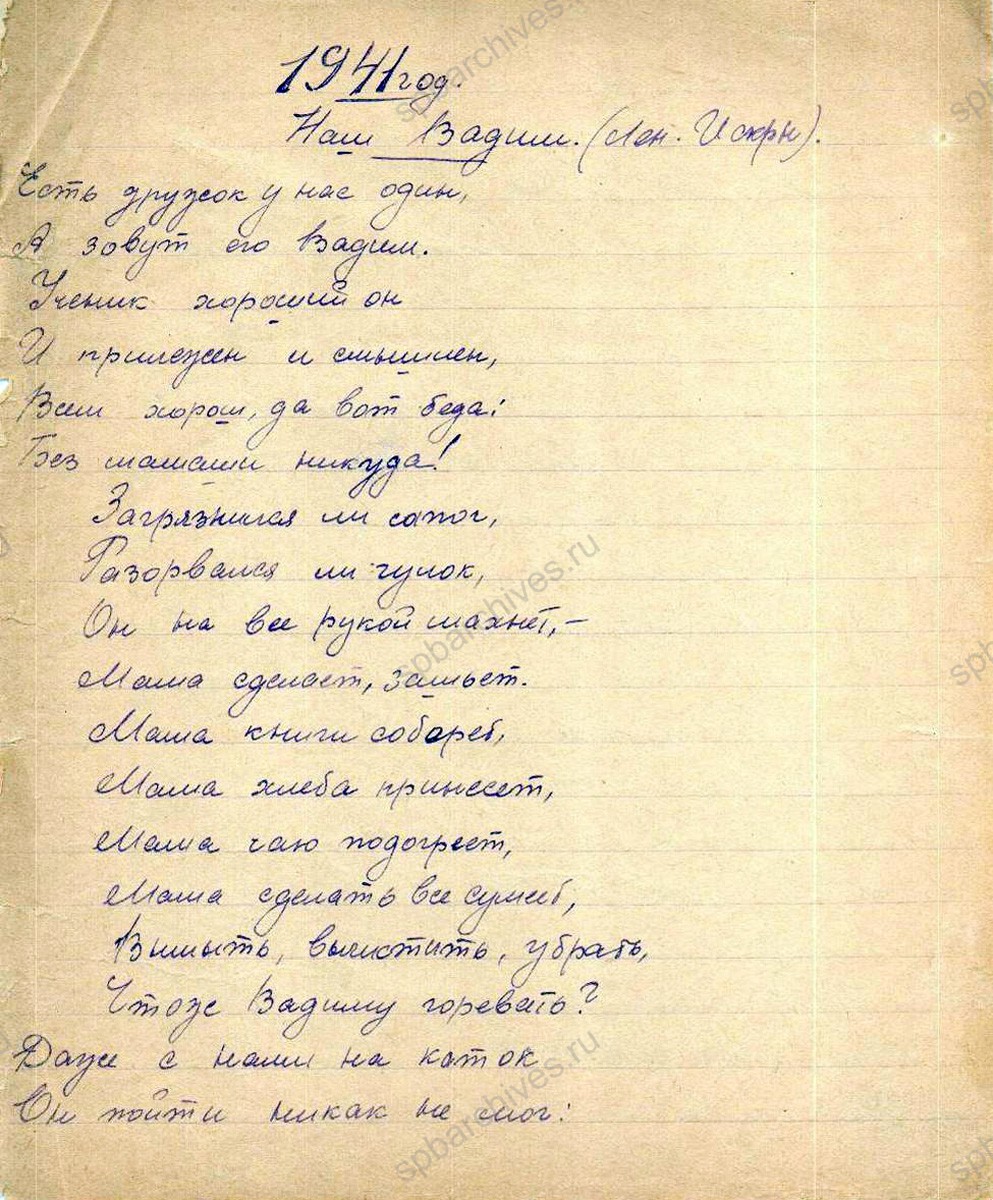 1941 год.
Наш Вадим. (Лен. Искры).
Есть дружок у нас один,
А зовут его Вадим.
Ученик хороший он
И прилежен и смышлен,
Всем хорош, да вот беда:
Без мамаши никуда!
Загрязнился ли сапог,
Разорвался ли чулок,
Он на все рукой махнет, –
Мама сделает, зашьет.
Мама книги соберет,
Мама хлеба принесет,
Мама чаю подогреет,
Мама сделать все сумеет,
Вымыть, вычистить, убрать,
Чтоже Вадиму горевать?
Даже с нами на каток
Он пойти никак не мог:
spbarchives.ru
spbarchives.ru
spbarchives.ru